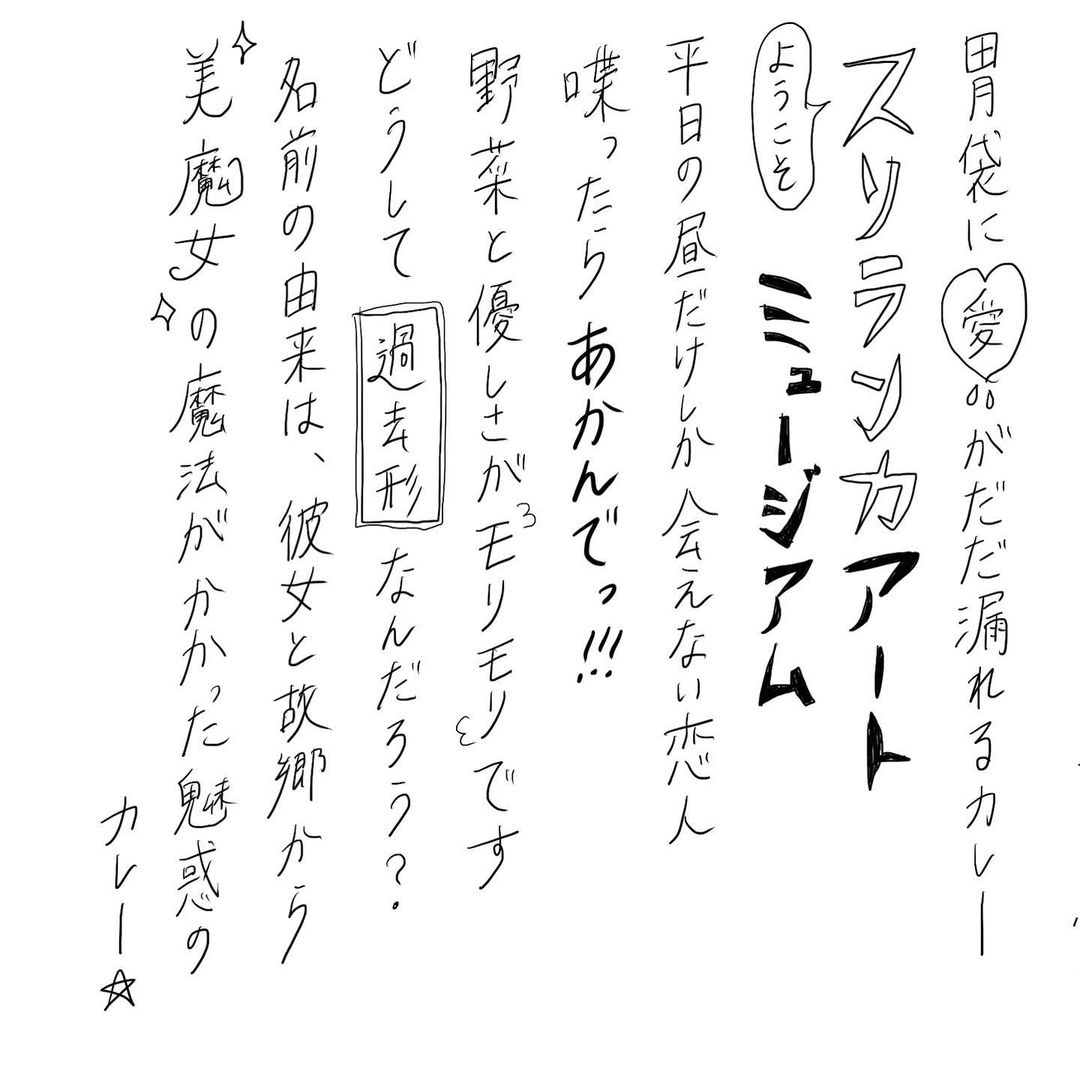 胃袋に愛がだだ漏れるカレー
スリランカアート
ようこそ
ミュージアム
平日の昼だけしか会えない恋人
喋ったらあかんでっ!!!
野菜と優しさがモリモリです
どうして過去形なんだろう?
名前の由来は、彼女と故郷から
美魔女の魔法がかかった魅惑の
カレー☆